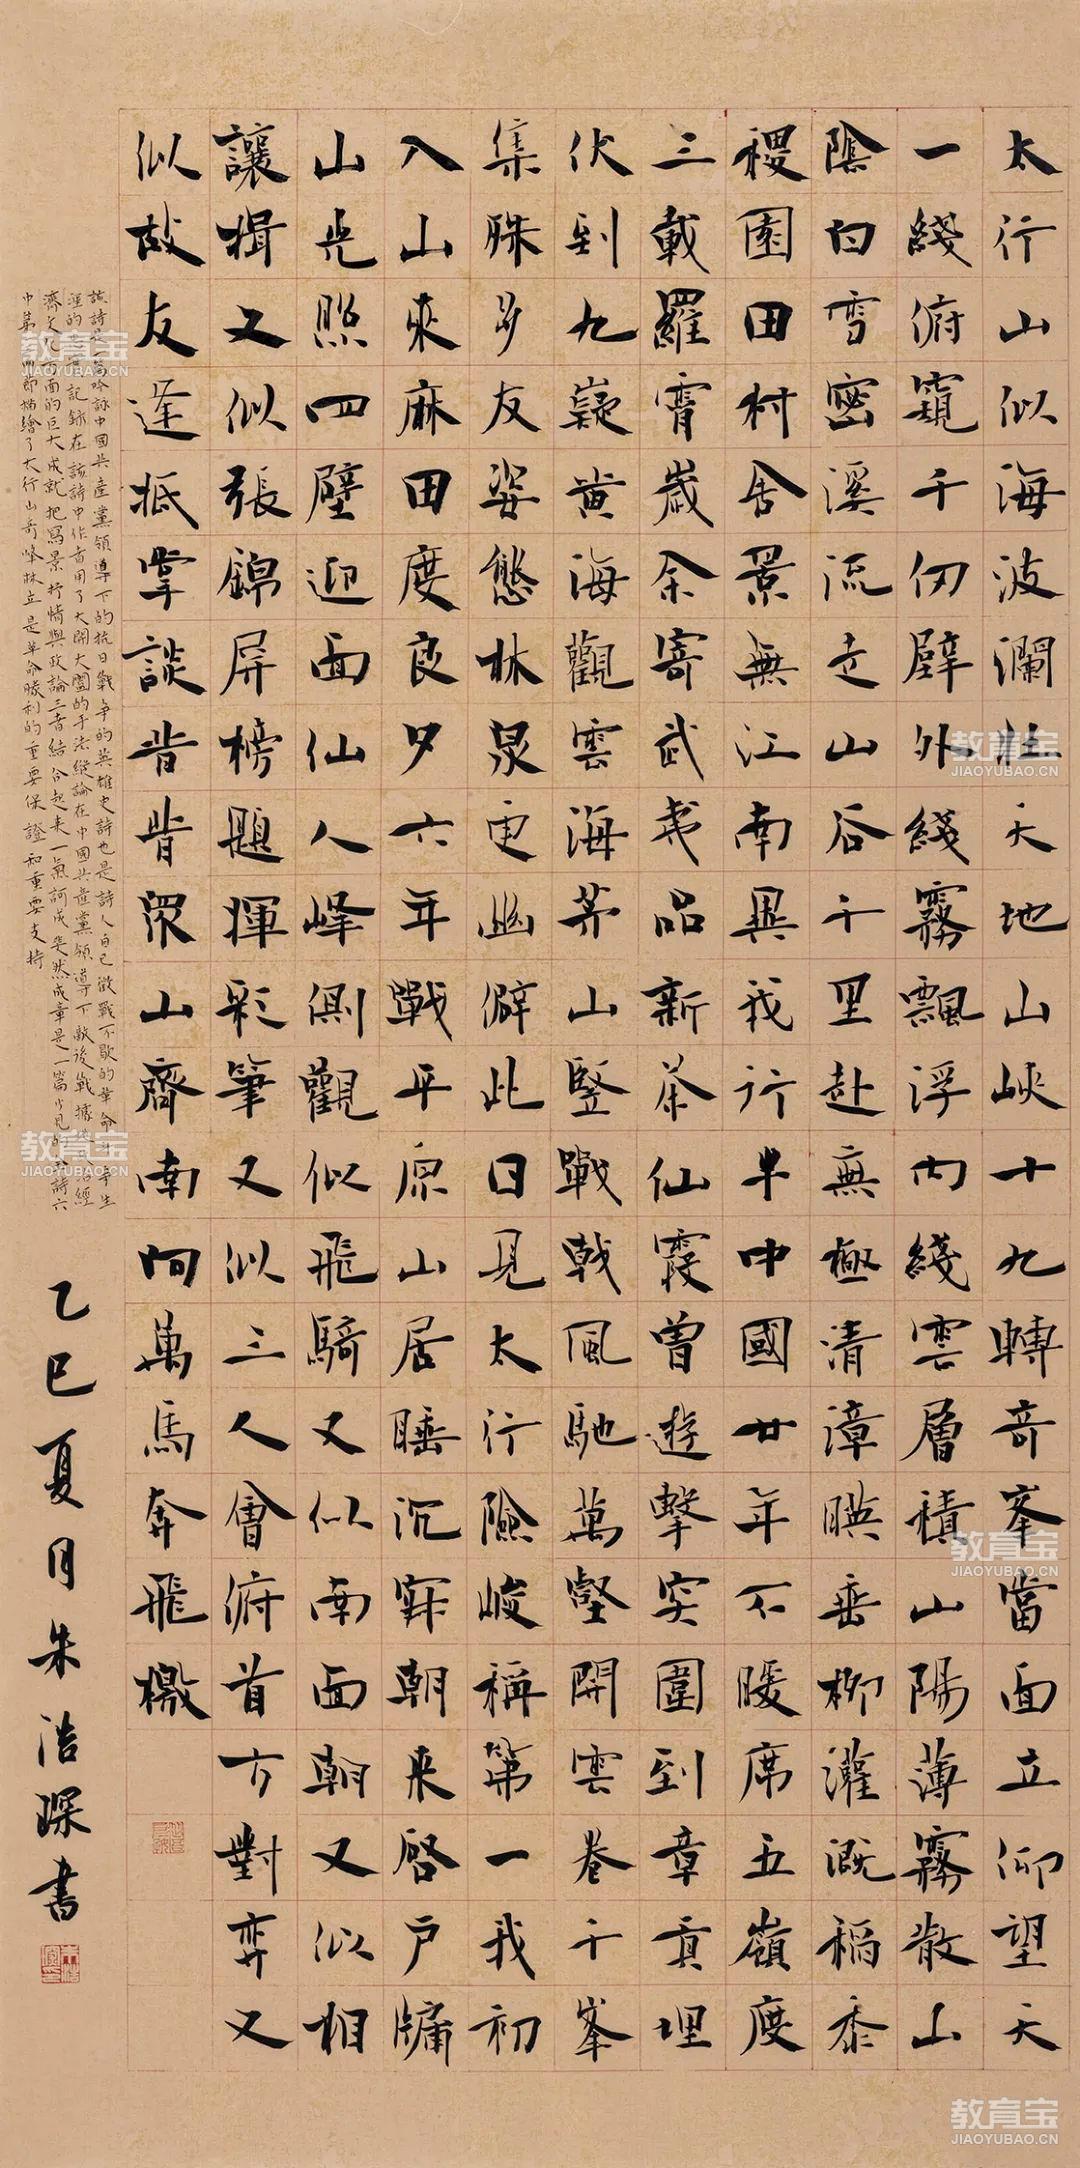 太行山似海波瀾壯天地山峽十九轉奇峯當面立仰望天
一綫俯窺千仞壁外綫霧飄浮內綫雲層積山陽薄霧散山
陰白雪密溪流走山谷千里赴無極清漳映垂柳灌溉稻黍
稷園田村舍景無江南異我行半中國廿年不暖席五嶺度
三載羅霄歲余寄武夷品新茶仙霞曾遊擊突圍到章貢埋
伏到九嶷黃海觀雲海茅山豎戰戟風馳萬壑開雲卷千峯
集殊多友姿態林泉更幽僻此日見太行險峻稱第一我初
入山來麻田度良夕六年戰平原山居睡沉寐朝来啓戶牖
山光照四壁迎面仙人峰側觀似飛騎又似南面朝又似相
讓揖又似張錦屏榜題揮彩筆又似三人會俯首方對弈又
似故友逢抵掌談昔昔眾山齊南向萬馬奔飛檄
該詩是一篇吟詠中國共產黨領導下的抗日戰爭的英雄史詩也是詩人自己徵戰不歇的革命斗爭生
涯的記録在該詩中作者用了大開大闔的手法縱論在中國共產黨領導下敵後戰據政治經
濟文化方面的巨大成就把寫景抒情與政論三者結合起来一氣訶成斐然成章是一篇少見的詩六
中第四節描繪了太行山奇峰林立是革命勝利的重要保證和重要支持
乙巳夏月朱浩深書
教育宝
JIAOYUBAO.CN
教育宝
JIAOYUBAO.CN
教育宝
JIAOYUBAO.CN
教育宝
JIAOYUBAO.CN
教育宝
JIAOYUBAO.CN